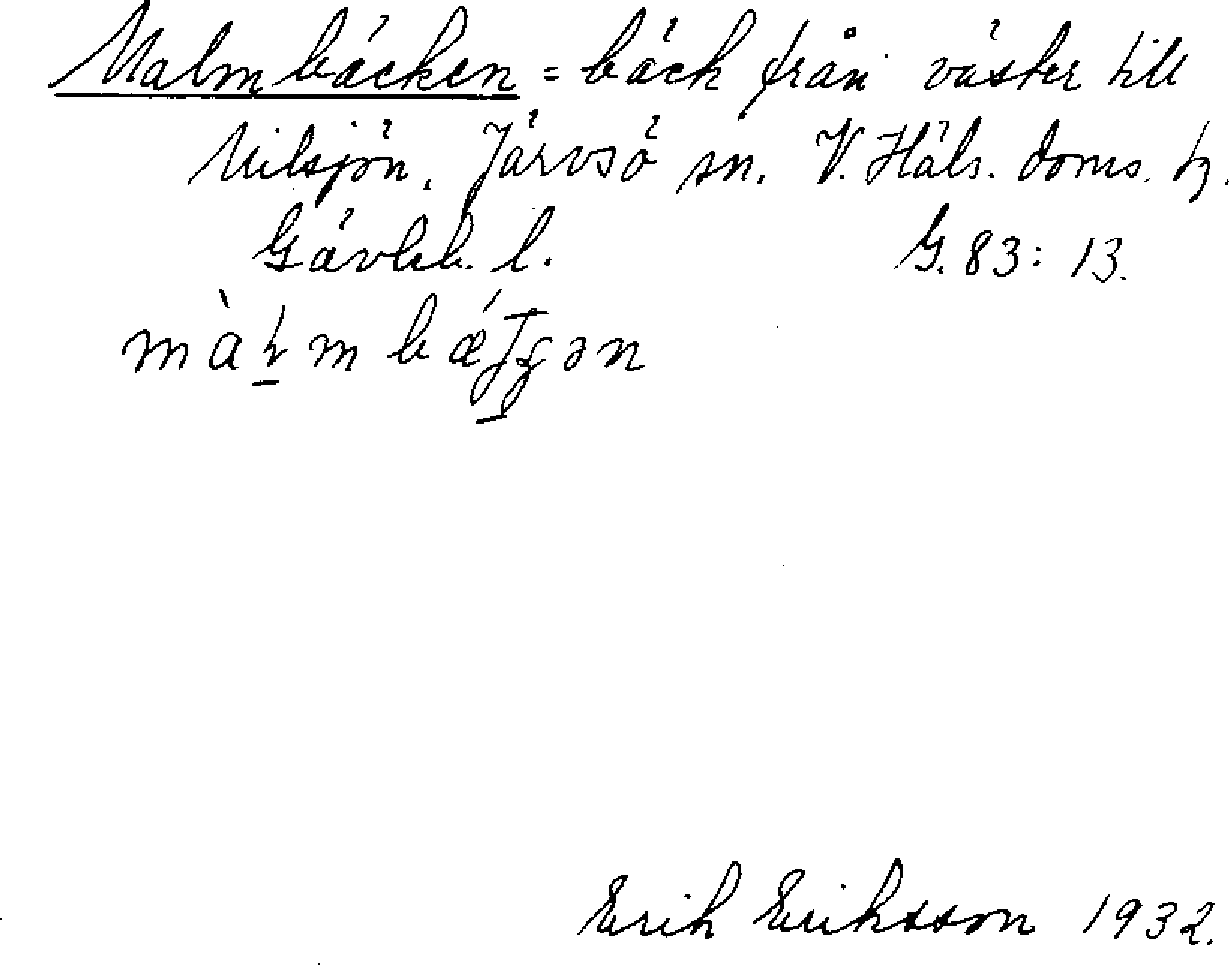 Malmbäcken = bäck från väster till
Nilsjön, Järvsö sn. V. Häls. doms. h.
Gävleb. l. G. 83:13.
Erik Eriksson 1932.